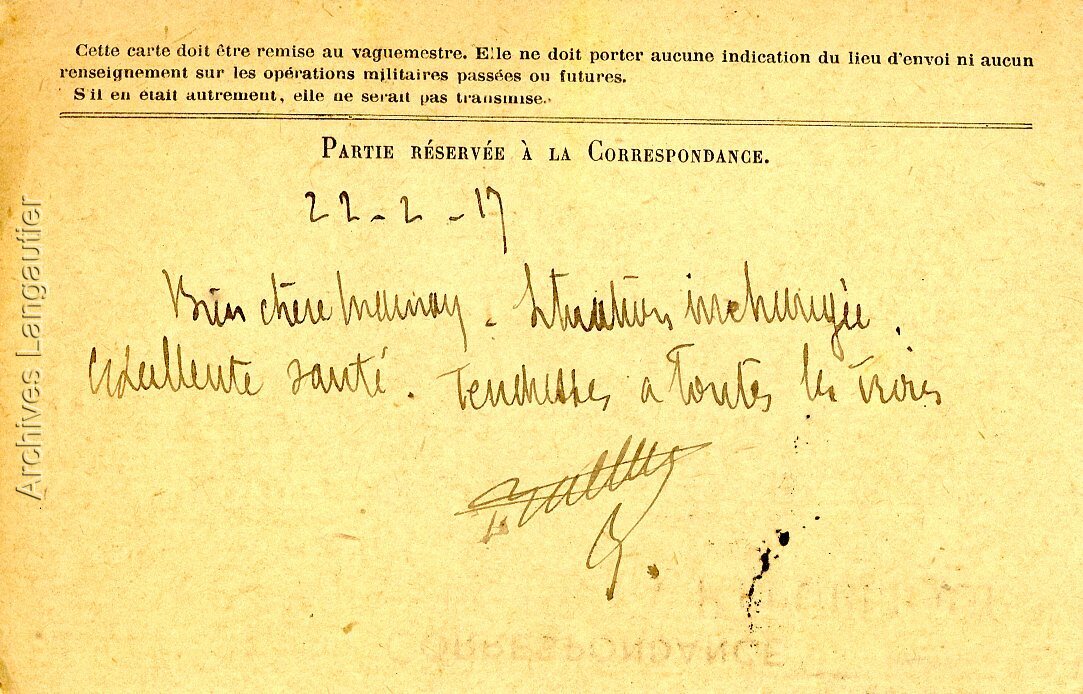 Cette carte doit être remise au vaguemestre. Elle ne doit porter aucune indication du lieu d'envoi ni aucun
renseignement sur les opérations militaires passées ou futures.
S'il en était autrement, elle ne serait pas transmise.
PARTIE RÉSERVÉE À LA CORRESPONDANCE.
22-2-17
Bien chère . Situation inchangée.
Excellente santé. Tendresses a toutes les trois
Archives Langautier
CORRESPONDANCE